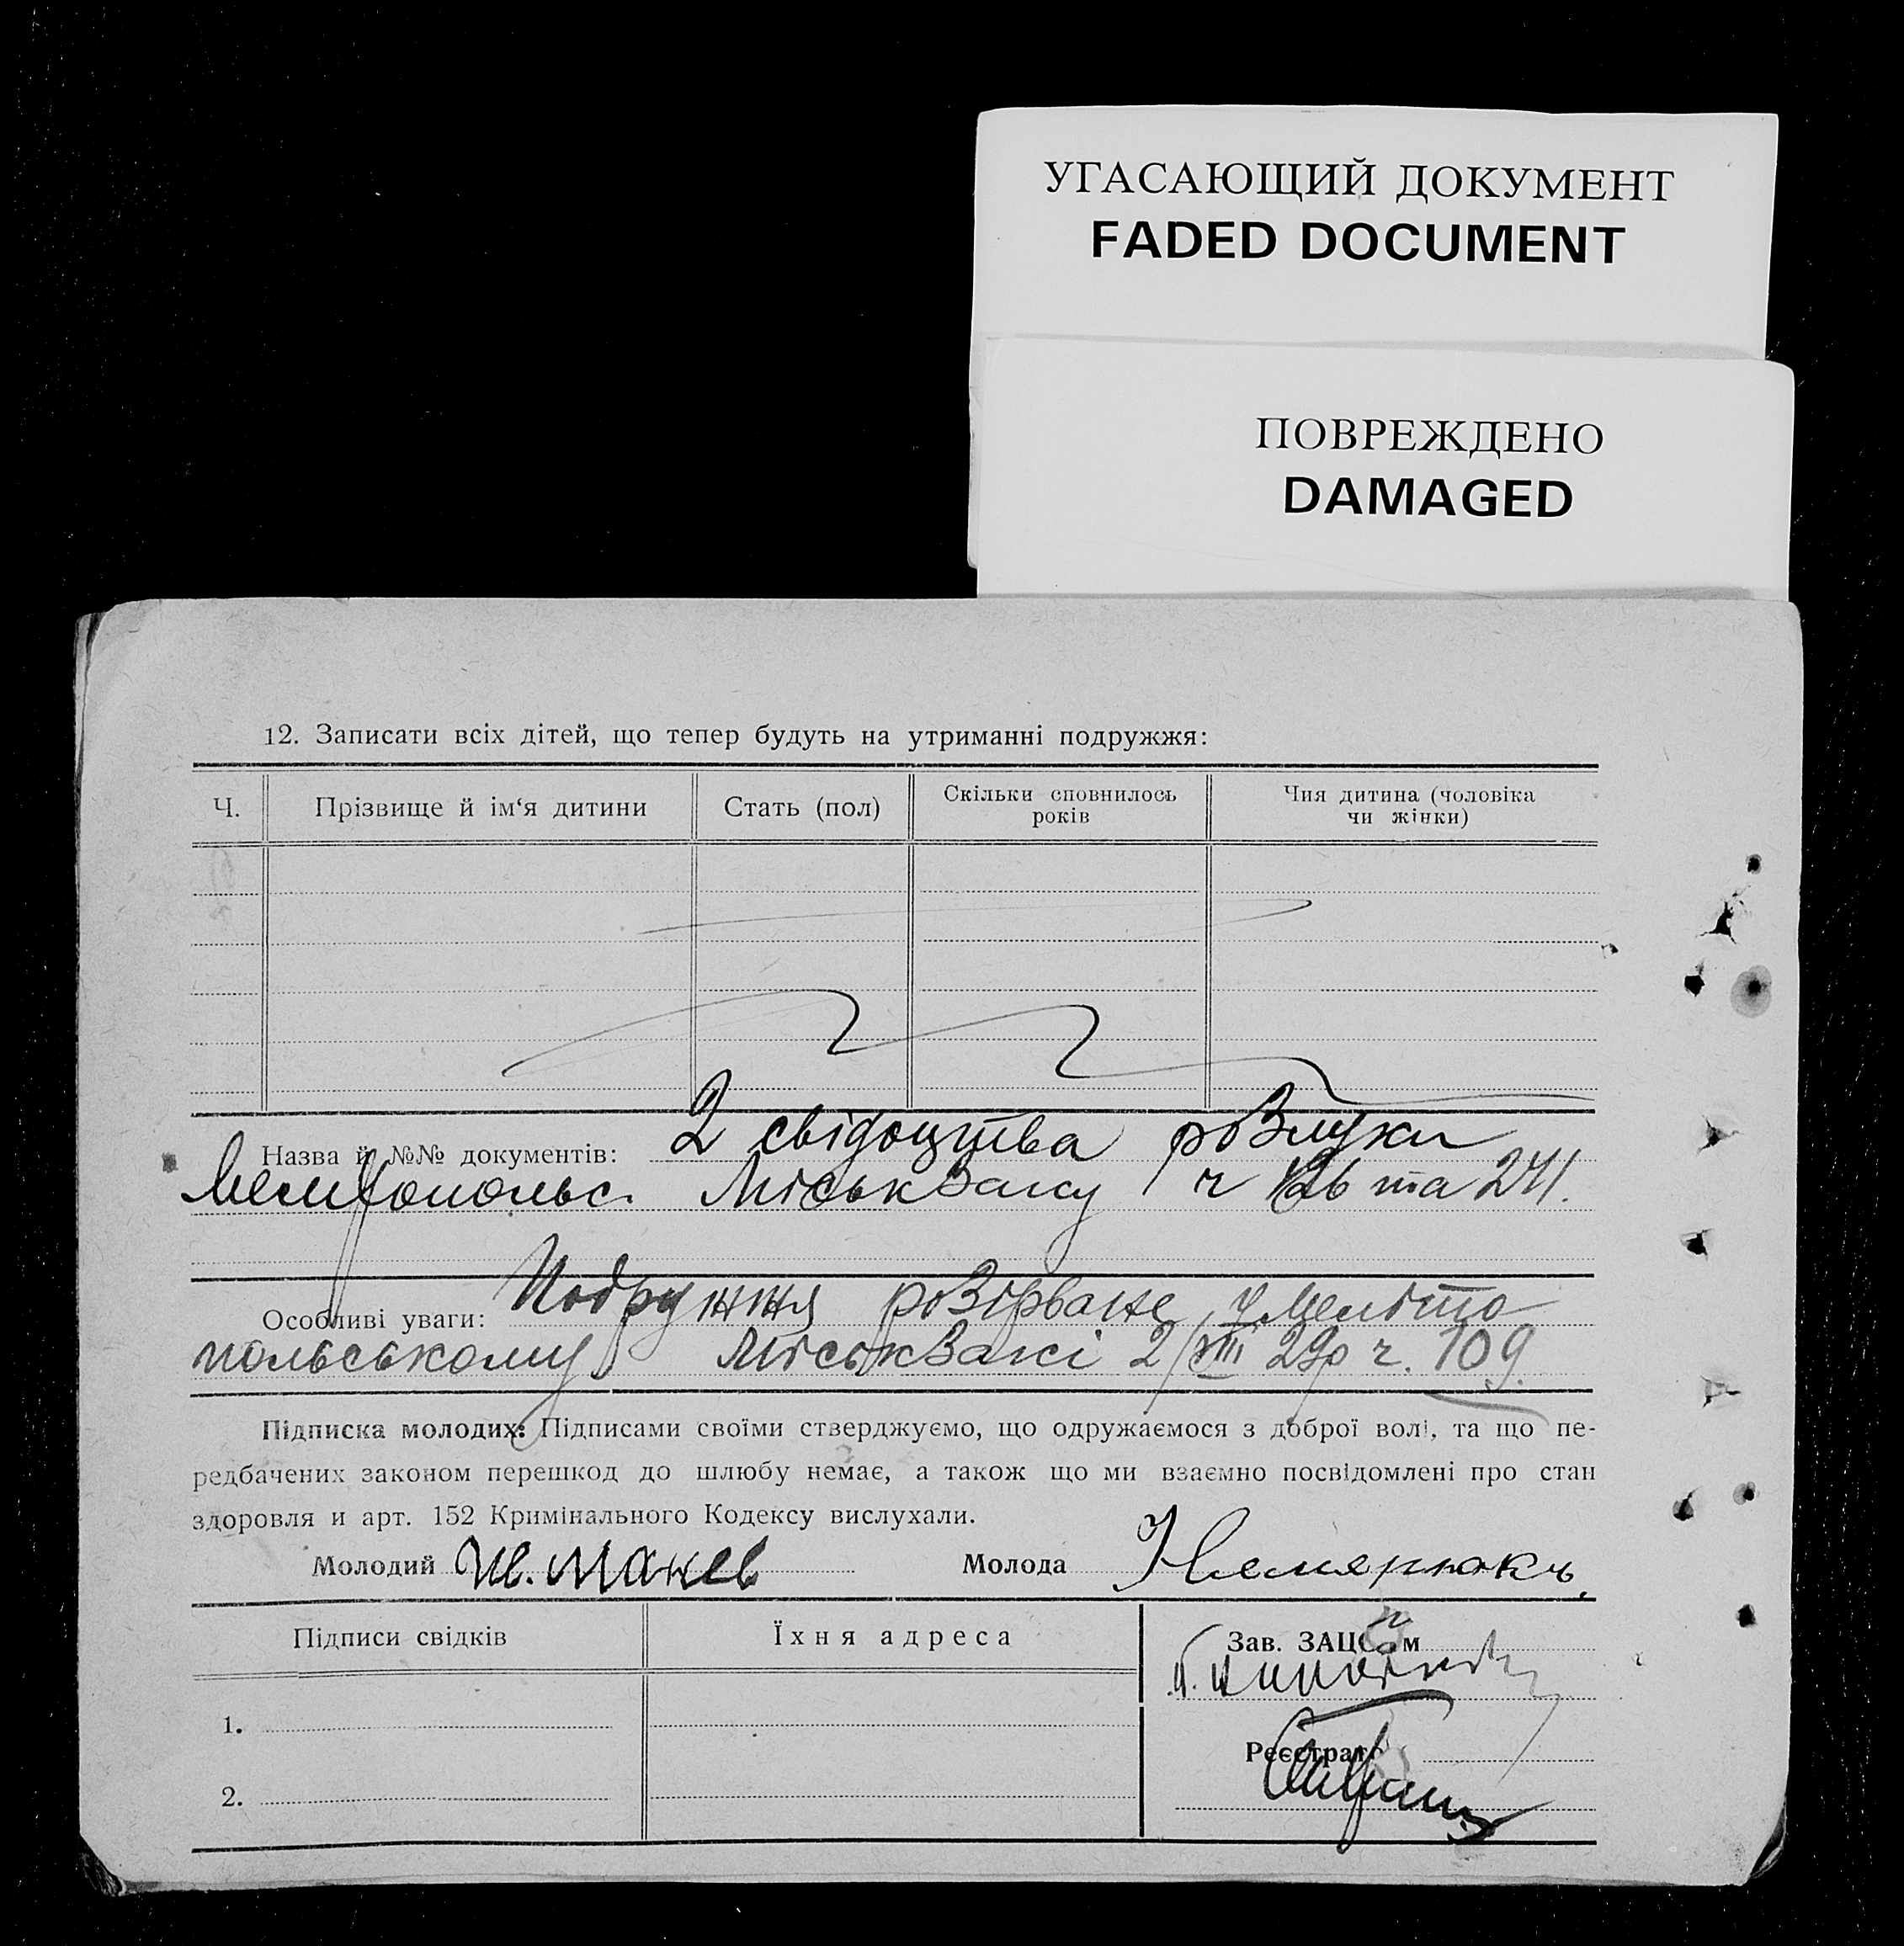 УГАСАЮЩИЙ ДОКУМЕНТ
FADED DOCUMENT
ПОВРЕЖДЕНО
DAMAGED
12. Записати всіх дітей, що тепер будуть на утриманні подружжя:
Ч. Прізвище й ім‘я дитини Стать (пол) Скільки сповнилось років Чия дитина (чоловіка чи жінки)
Назва й №№ документів: 2 свідоцтва розлуки
Мелітопольс. Міськзагсу ч 126 та 241.
Особливі уваги: Подружжя розірване у Меліто
польському Міськзагсі 2/VIII 29р ч. 109.
Підписка молодих: Підписами своїми стверджуємо, що одружаємося з доброї волі, та що пе-
редбачених законом перешкод до шлюбу немає, а також що ми взаємно посвідомлені про стан
здоровля и арт. 152 Кримінального Кодексу вислухали.
Молодий Молода
Підписи свідків Їхня адреса Зав. ЗАЦСом
1.
Реєстрат
2.